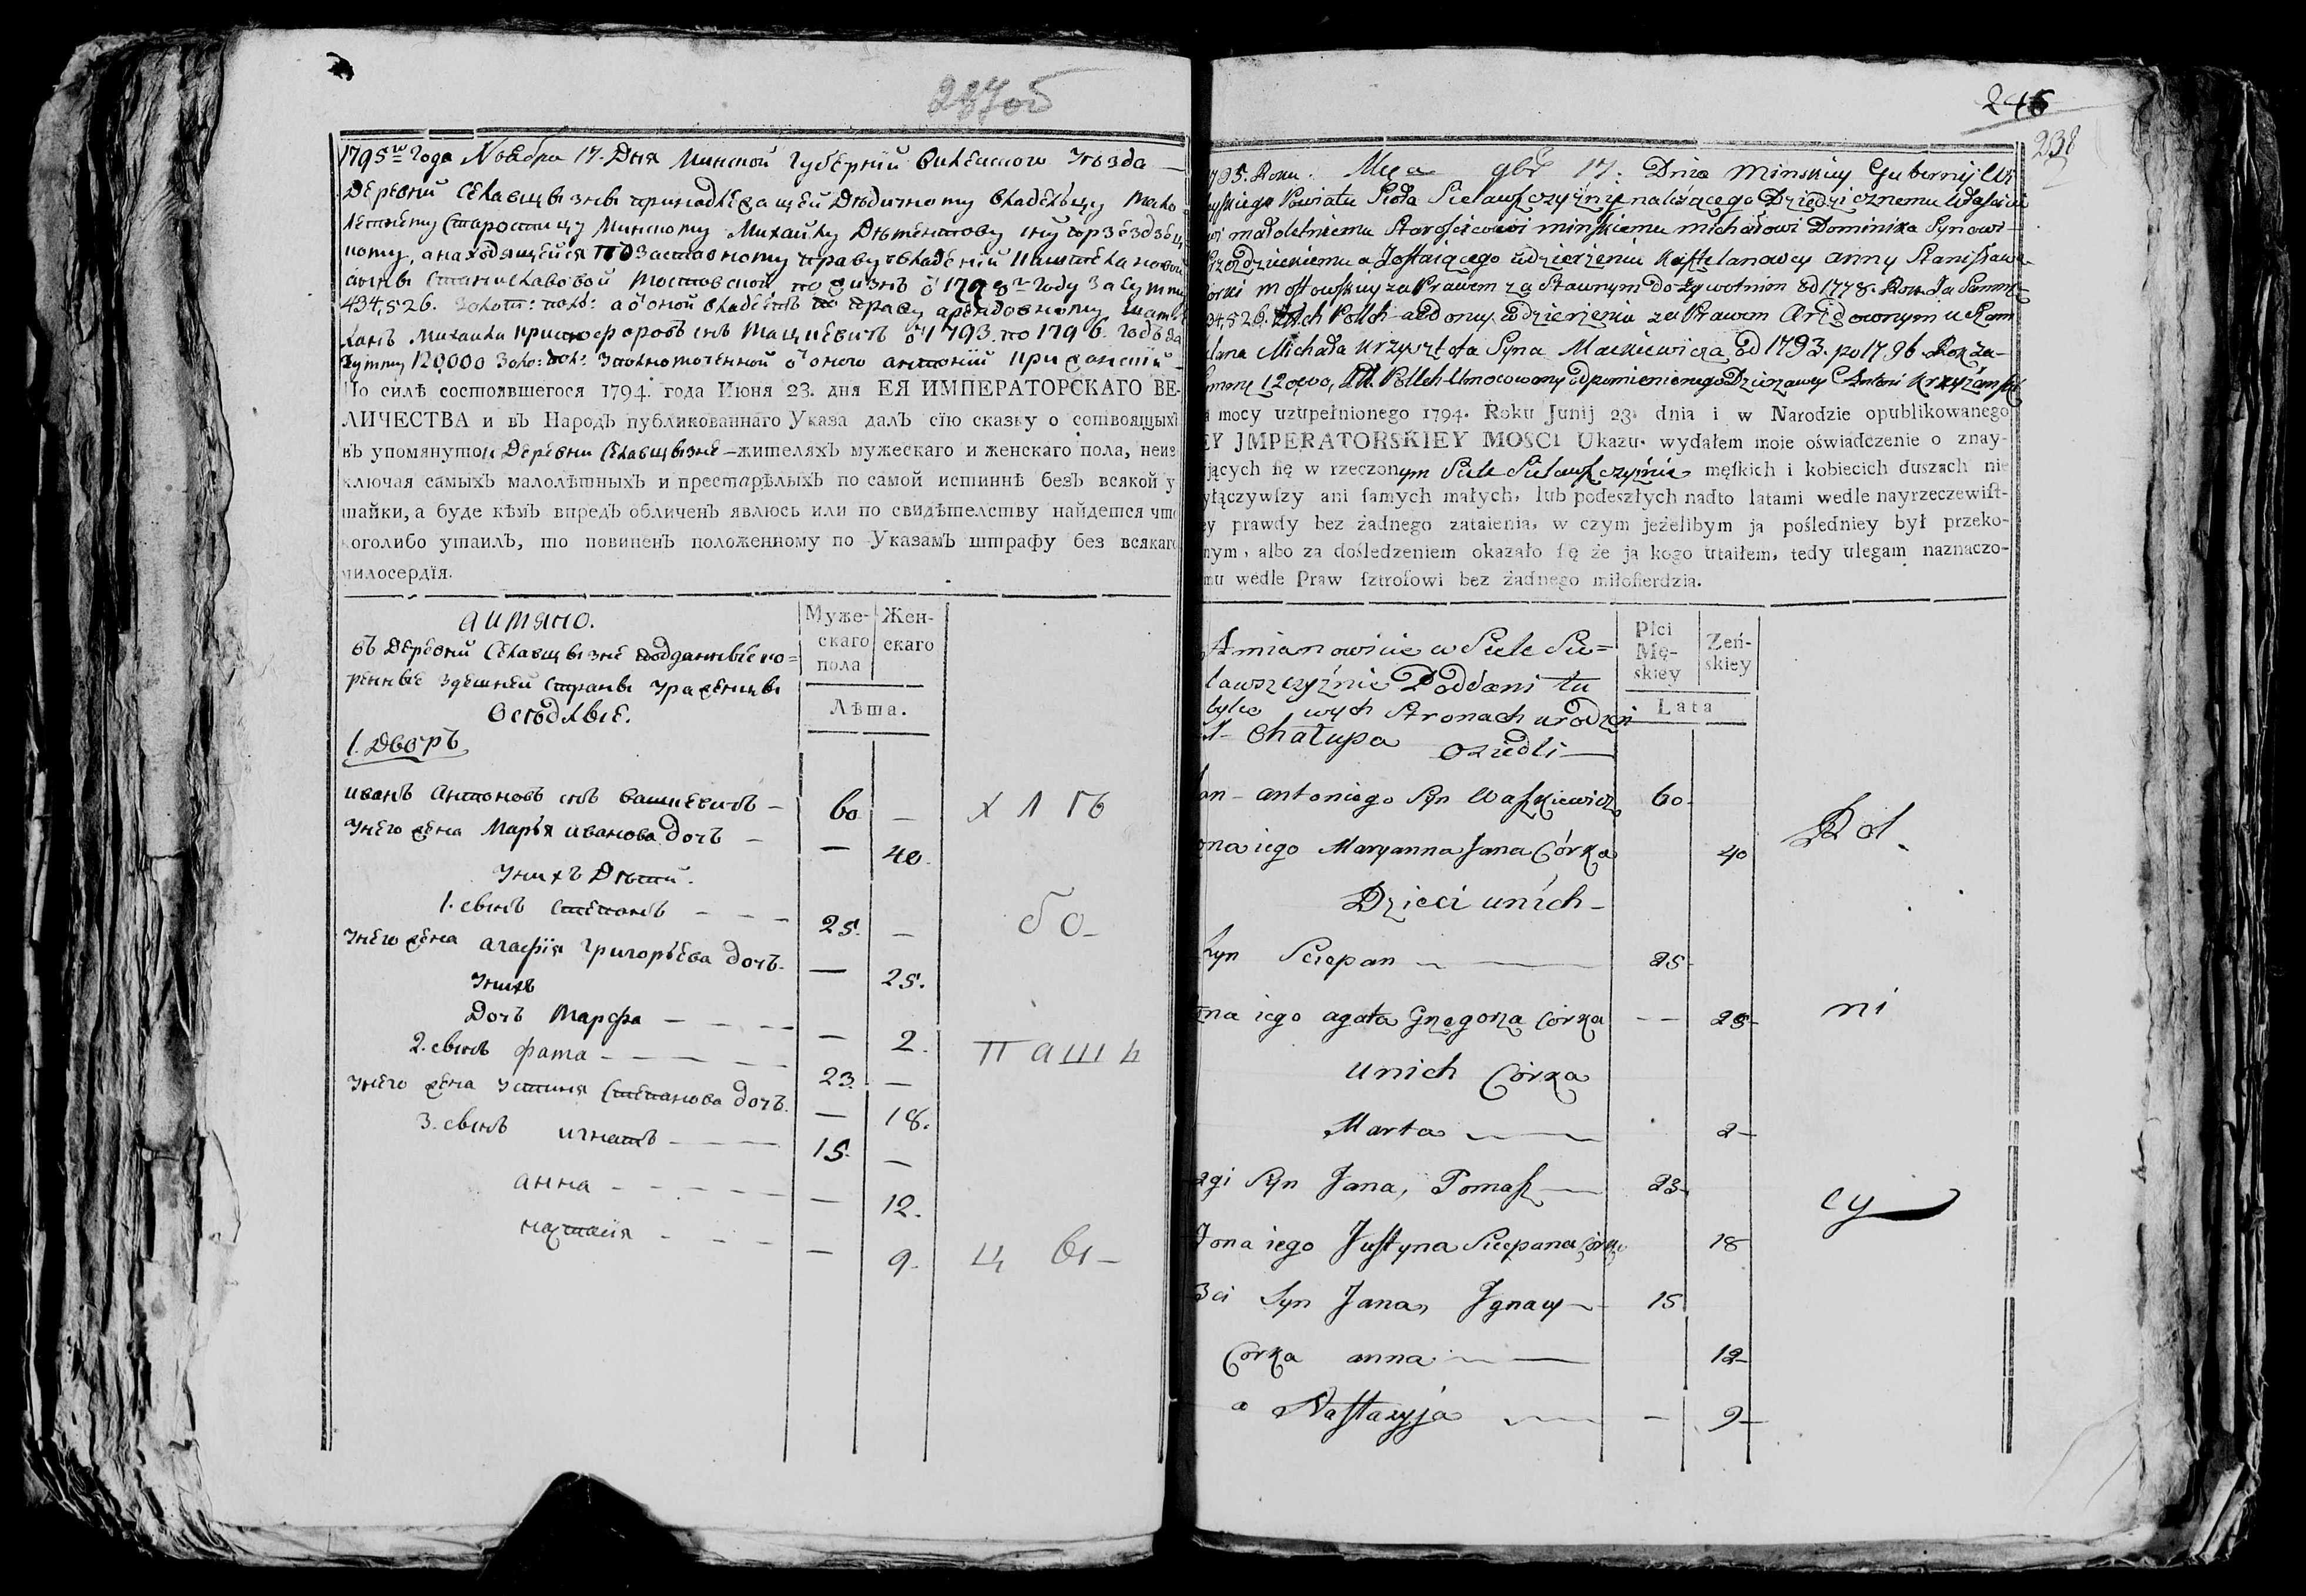 237об
1795го Года Ноября 17. Дня Минской Губернїи Вилейского Уезда
Деревни Селавщызны принадлежащей Дедичному владельцу Мало
летнему Старостицу Минскому Михайлу сну Прездзец
кому, а находящейся по Заставному праву
Станиславовой Мостовской по о 1778 Году За Сумму
434,526. Золот: пол: а о оной по праву арендовному
Михаила сна Мацкевича о 1793. по 1796. Годъ За
Сумму 120,000 Золо: пол: о оного Антонїй
По силѣ состоявшегося 1794. года Июня 23. дня ЕЯ ИМПЕРАТОРСКАГО ВЕ-
ЛИЧЕСТВА и въ Народъ публикованнаго Указа далъ сїю сказку о состоящыхъ
въ упомянутой Деревни Селавщызне жителяхъ мужескаго и женскаго пола, неиз
ключая самыхъ малолѣтныхъ и престарѣлыхъ по самой истиннѣ безъ всякой у
тайки, а буде кѣмъ впредъ обличенъ явлюсь или по свидѣтелству найдется что
коголибо утаилъ, то повиненъ положенному по Указамъ штрафу без всякаго
милосердїя.
Муже-
скаго
пола
Жен-
скаго
Лѣта.
въ Деревни Селавщызне подданные ко=
ренные здешней страны ураженцы
Оседлые.
1. Дворъ
иванъ Антоновъ снъ Вашкевичъ – 60 –
Унего жена Марья иванова дочъ – – 40.
Унихъ Дети.
1. сынъ Степанъ – – – 25. –
Унего жена агафїя Григорьева дочъ. – 25.
Унихъ
Дочъ Марфа – – – – 2.
2. сынъ фама – – – – 23. –
Унего жена Устиня Степанова дочъ. – 18.
3. сынъ игнатъ – – – 15. –
анна – – – – – 12.
настасїя – – – – 9.
Х Л Ѣб
бо–
пашц
ц ы–
246
238
1795. Roku. Msca 9br 17. Dnia Minskiey Gubernij Wi
leyskiego Powiatu Sioła Sielawszczyźny należącego Dziedzicznemu Właścicie
lowi małoletniemu Starościcowi minskiemu michałowi Dominika Synowi
Przezdzieckiemu a Zostaiącego wdzierzeniu Kasztelanowey anny Stanisława
Corki Mostowskiey za Prawem zastawnym dożywotnim od 1778. Roku Za Summę
434,526. Złch Polsch a od oney wdzierzeniu za Prawem Arędownym u Szam
belana Michała Krzysztofa Syna Mackiewicza od 1793. po 1796. Rok za
Summę 120000, Zł. Polsch Umocowany od pomienionego Dzierzawcy Antoni Krzyżanski
z mocy uzupełnionego 1794. Roku Junij 23. dnia i w Narodzie opublikowanego
EY JMPERATORSKIEY MOSCI Ukazu. wydałem moie oświadczenie o znay-
jących się w rzeczonym Siele Sielawszczyznie męskich i kobiecich duszach nie
yłączywszy ani samych małych, lub podeszłych nadto latami wedle nayrzeczewist-
ey prawdy bez żadnego zataienia, w czym jeżelibym ja pośledniey był przeko-
nym, albo za dośledzeniem okazało się że ja kogo utaiłem, tedy ulegam naznaczo-
mu wedle Praw sztrofowi bez żadnego miłosierdzia.
Płci
Mę-
skiey
Żeń-
skiey
Lata
Amianowicie w Siele Sie=
lawszczyźnie Poddani tu
tylko w tych Stronach urodzeni
1- Chałupa osiedli
Jan - antoniego Syn Waszkiewicz 60-
Żona iego Maryanna Jana Córka 40
Dzieci unich–
Syn Sciepan 25-
żona iego agata Grzegorza Córka – 25-
unich Córka
Marta 2–
2gi Syn Jana, Tomasz 23-
Żona iego Justyna Sciepana Córka 18
3ci Syn Jana, Jgnacy 15
Corka anna 12–
a Nastazyja – 9–
Rol
ni
cy